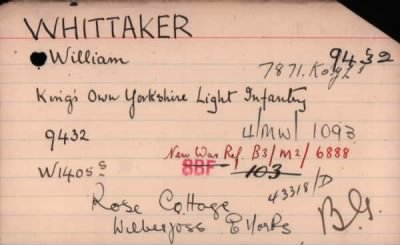 WHITTAKER
William
9432
7871. Koyli
King's Own Yorkshire Light Infantry
9432
4/MW/1093
New War Ref. B3/M2/6888
W1405 S
8BF
103
43318/D
Rose Cottage
Wilberfoss E Yorks